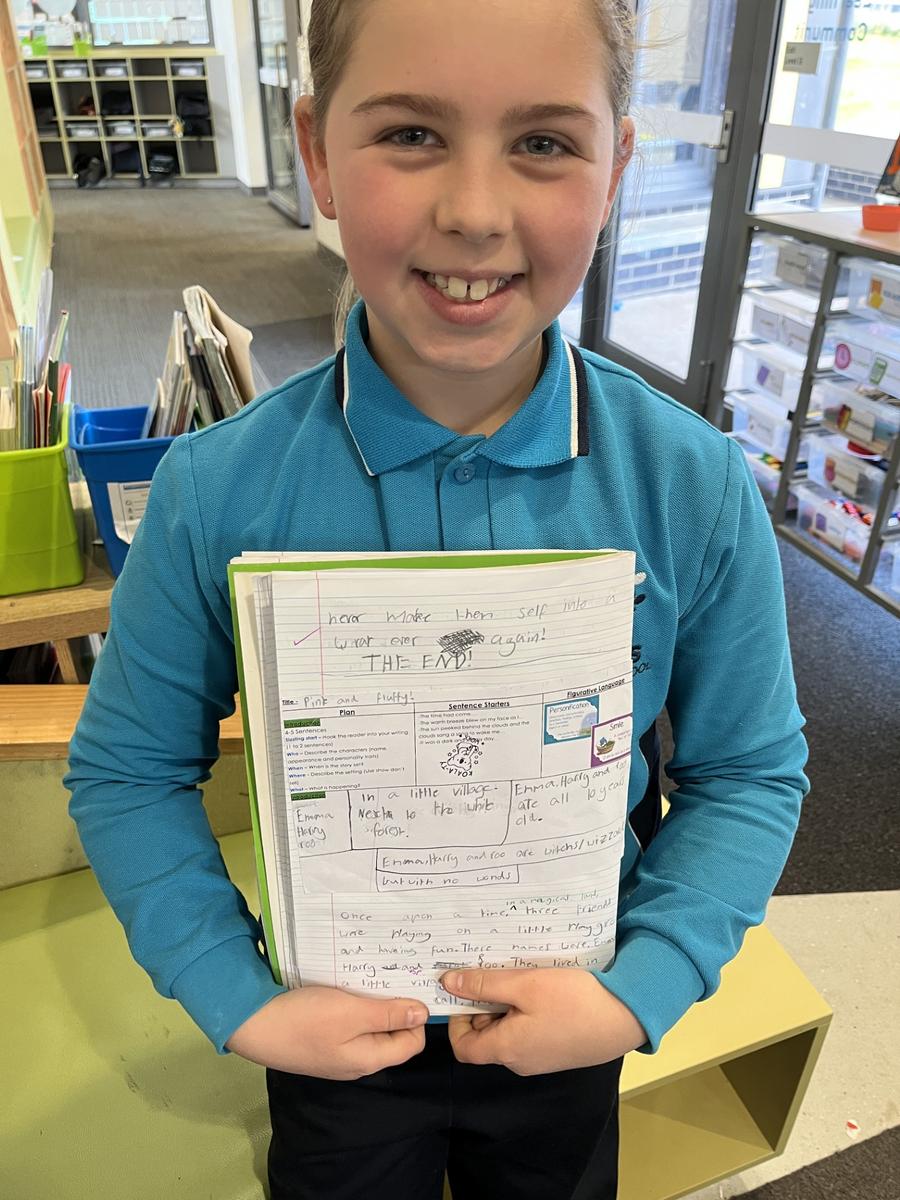 never make them self into a
wrat ever again!
THE END!
Title - Pink and fluffy!
Plan
Sentence Starters
Figurative Language
4-5 Sentences
Sizzling start – Hook the reader into your writing
(1 to 2 sentences)
Who – Describe the characters (name,
appearance and personality traits)
When – When is the story set?
Where - Describe the setting (use show don't
tell)
What – What is happening?
The time had come
The warm breeze blew on my face as I
The sun peeked behind the clouds and the
clouds sang a song to wake me
It was a dark and day
Personification
Simile
Emma
Harry
roo
In a little village.
Next to the white
forest.
Emma, Harry and roo
are all 10 years
old.
Emma, Harry and roo are witchs/wizzards
but with no wonds
in a magical land,
Once upon a time, three friends
were playing on a little
and haveing fun. There names were, Emma
Harry and roo. They lived in
a little
call
Communit